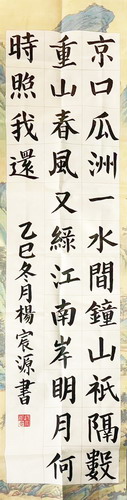 京口瓜洲一水間鐘山祇隔數
重山春風又綠江南岸明月何
時照我還
乙巳冬月楊宸源書